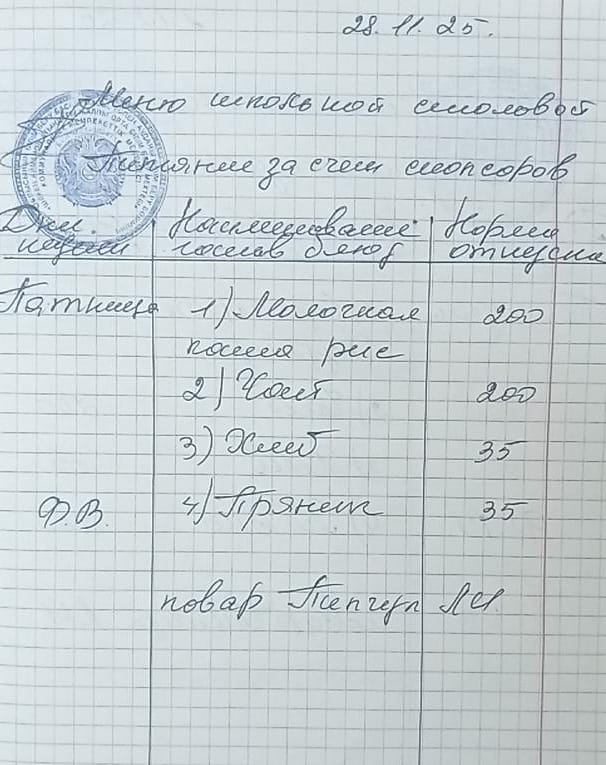 28. 11. 25.
Меню школьной столовой
Питание за счет спонсоров
Дни недели
Наименование состав блюд
Норма отпуска
Пятница 1) Молочная 200
каша рис
2) Чай 200
3) Хлеб 35
Ф.В. 4) Пряник 35
повар